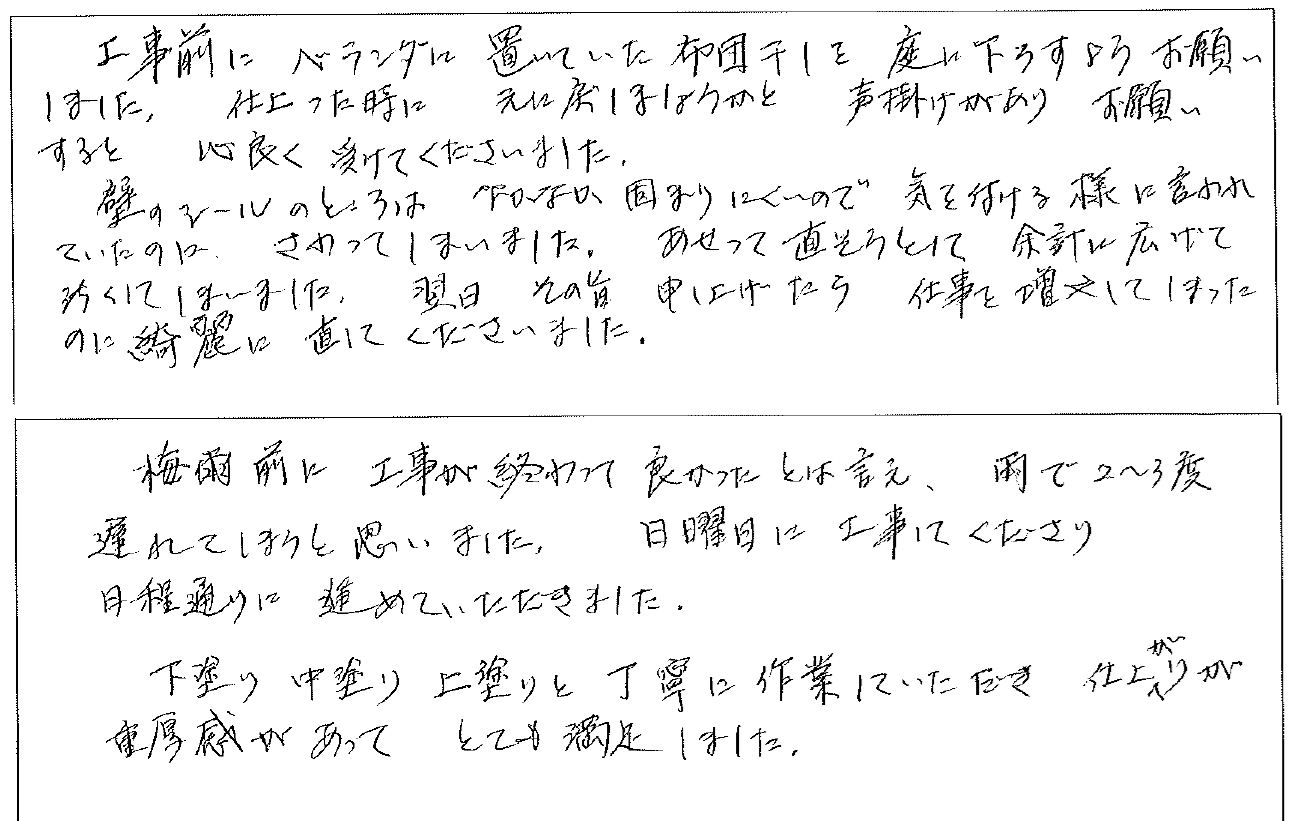 工事前に ベランダに 置いていた 布団干しを 庭に下ろすよう お願い
しました。 仕上った時に 元に戻しましょうかと 声掛けがあり お願い
すると 心良く 受けてくださいました。
壁のシールのところは なかなか 固まりにくいので 気を付ける様に言われ
ていたのに、さわってしまいました。 あせって直そうとして 余計に広げて
汚くしてしまいました。 翌日 その旨 申し上げたら 仕事を増やしてしまった
のに綺麗に 直してくださいました。
梅雨前に 工事が終わって 良かったとは言え、雨で2〜3度
遅れてしまうと思いました。 日曜日に 工事してくださり
日程通りに 進めていただきました。
下塗り 中塗り 上塗りと 丁寧に作業していただき 仕上がりが
重厚感があって とても満足しました。